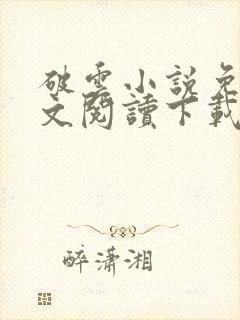 破雲小說免
文閱讀下載
醉瀟湘